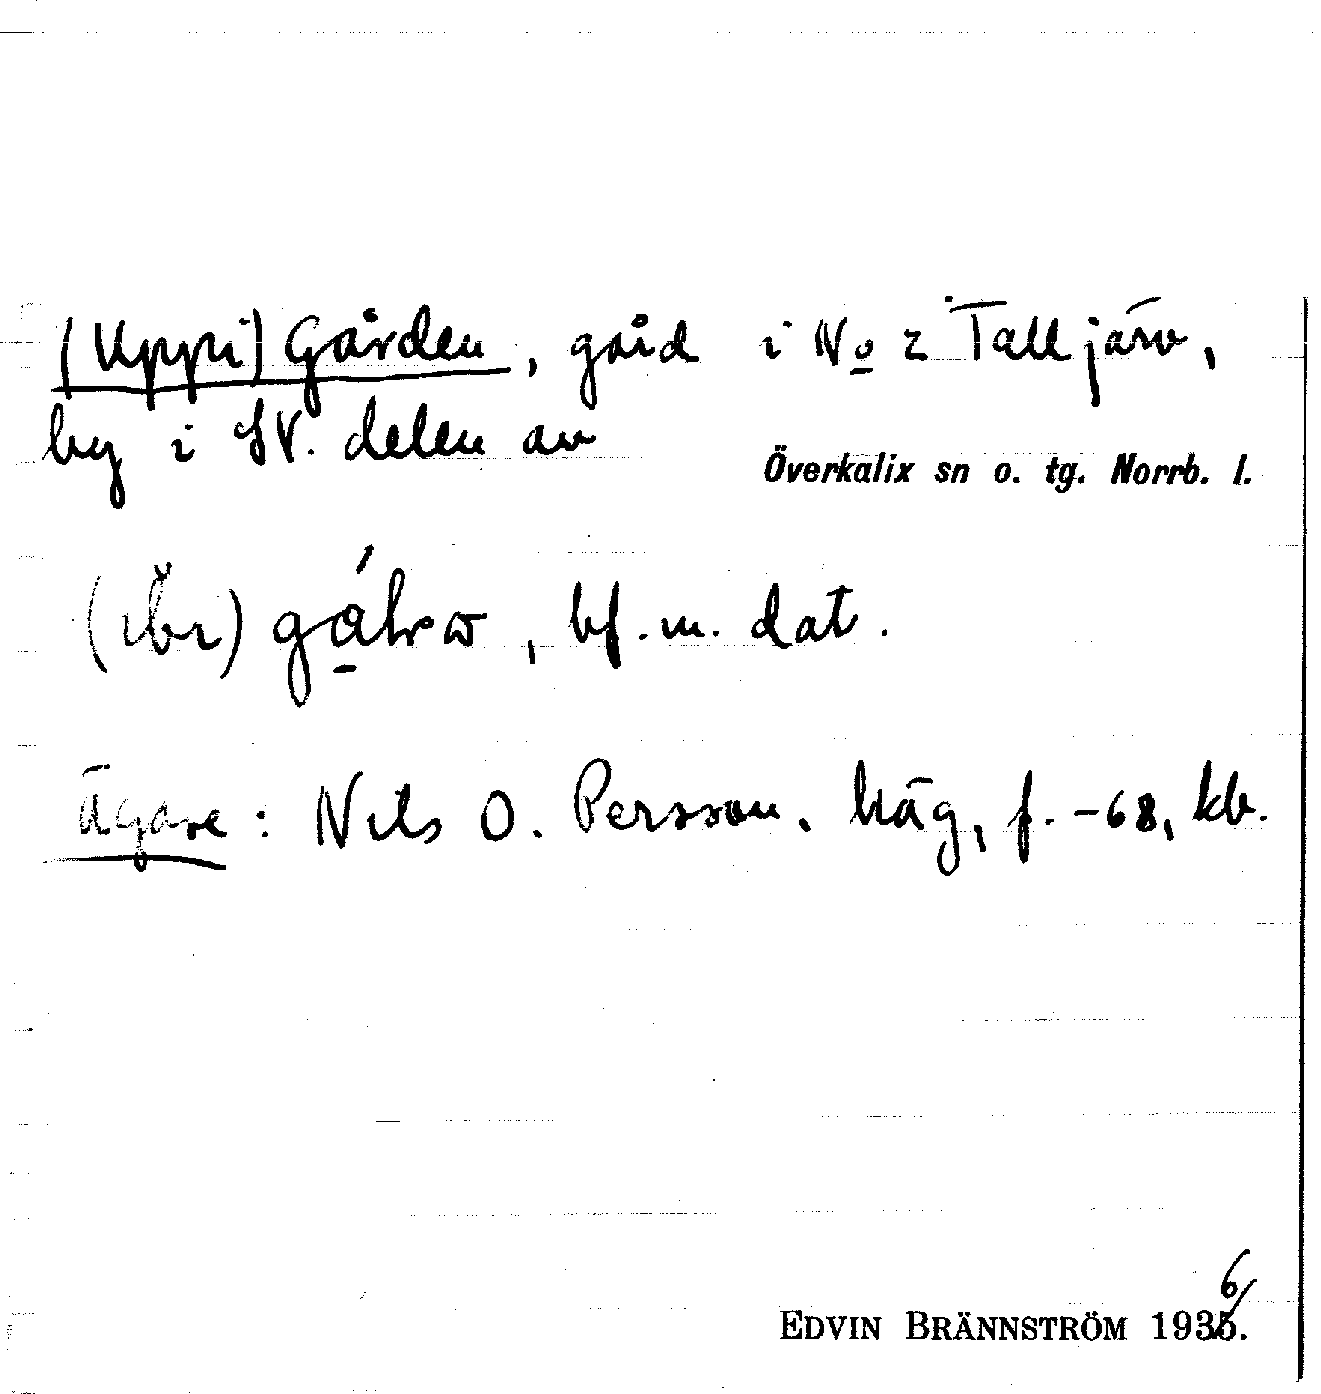 (Uppi) Gården, gård i No 2 Talljärv,
by i SV. delen av
Överkalix sn o. tg. Norrb. l.
bf. m. dat.
Ägare: Nils O. Persson, häg, f. -68, kb.
EDVIN BRÄNNSTRÖM 1936.